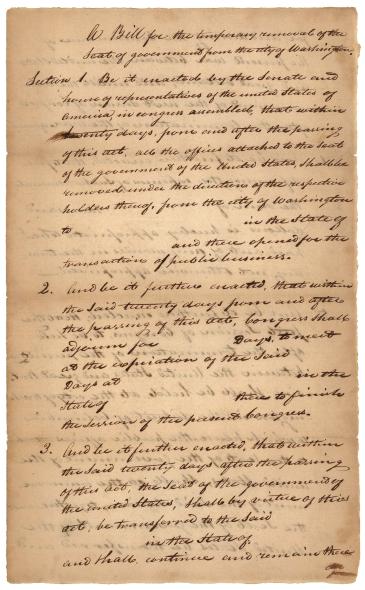 A Bill for the temporary removal of the
Seat of government from the city of Washington.
Section 1. Be it enacted by the Senate and
house of representatives of the united States of
America, in congress assembled, that within
twenty days, from and after the passing
of this act, all the offices attached to the seat
of the government of the United States, shall be
removed under the direction of the respective
holders thereof, from the city of Washington
to in the State of
and there opened for the
transaction of public business.
2. And be it further enacted, that within
the said twenty days from and after
the passing of this act, Congress shall
adjourn for Days, to meet
at the expiration of the said
Days at in the
State of there to finish
the session of the present Congress.
3. And be it further enacted, that within
the said twenty days after the passing
of this act, the seat of the government of
the united States, shall by virtue of this
act, be transferred to the said
in the State of
and shall continue and remain there